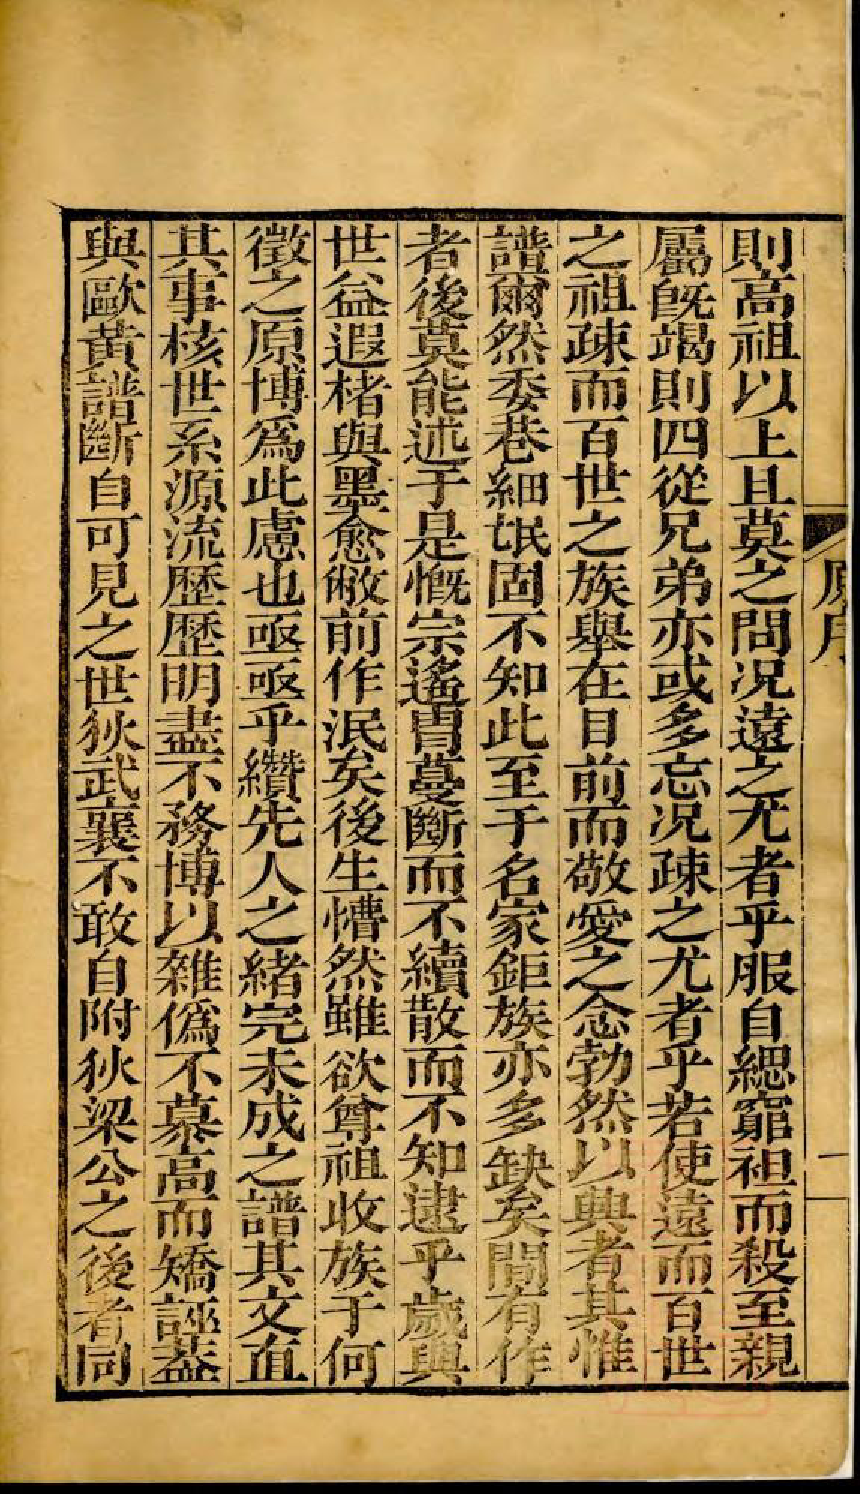 原序
一
則高祖以上且莫之問况遠之尤者乎服自緦窮祖而殺至親
屬旣竭則四從兄弟亦或多忘况疎之尤者乎若使遠而百世
之祖疎而百世之族舉在目前而敬愛之念勃然以興者其惟
譜爾然委巷細氓固不知此至于名家鉅族亦多缺矣間有作
者後莫能述于是慨宗遙胄蔓斷而不續散而不知逮乎歲與
世益遐楮與墨愈敝前作泯矣後生懵然雖欲尊祖收族于何
徵之原博爲此慮也亟亟乎纘先人之緒完未成之譜其文直
其事核世系源流歷歷明盡不務博以雜僞不慕高而矯誣葢
與歐黃譜斷自可見之世狄武襄不敢自附狄梁公之後者同